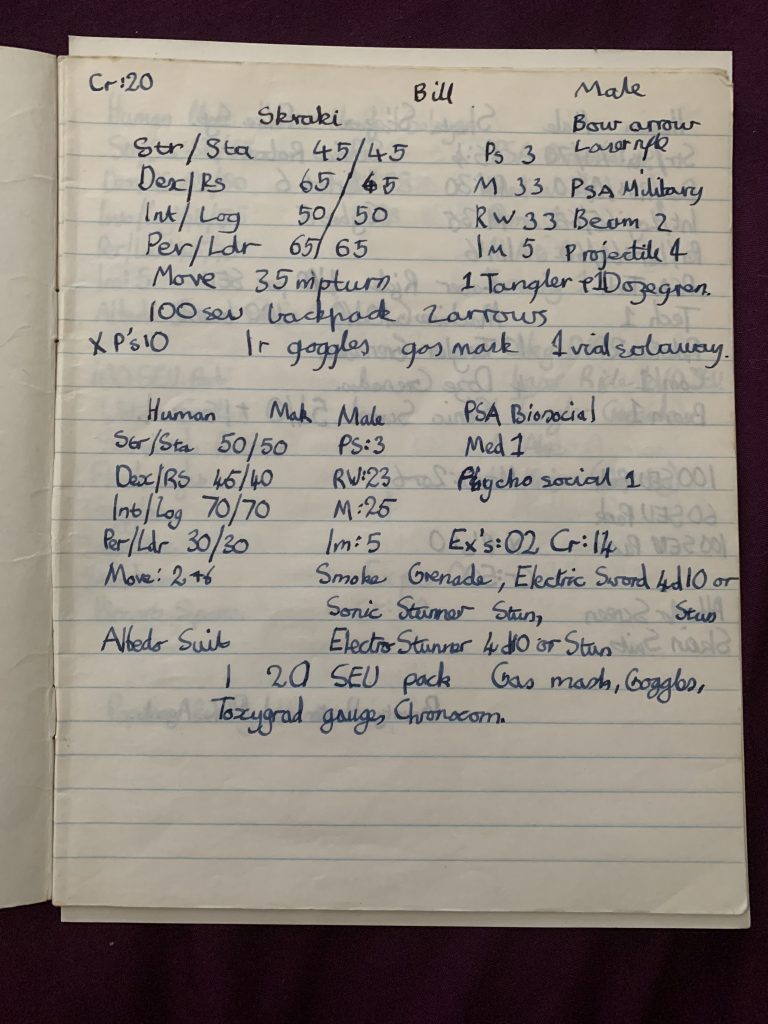 Cr:20 Bill Male
Skraki Bow arrow
Str/Sta 45/45 Ps 3 Laser rifle
Dex/Rs 65/65 M 33 PSA Military
Int/Log 50/50 RW 33 Beam 2
Per/Ldr 65/65 IM 5 Projectile 4
Move 35 mpturn 1 Tangler 1 Dozegren.
100 seu backpack 2 arrows
X P's 10 Ir goggles gas mask 1 vid solaway.
Human Mak Male PSA Biosocial
Str/Sta 50/50 PS:3 Med 1
Dex/RS 45/40 RW:23 Psycho social 1
Int/Log 70/70 M:25
Per/Ldr 30/30 Im:5 Ex's:02 Cr:14
Move: Smoke Grenade, Electric Sword 4d10 or
Sonic Stunner Stun, Stun
Albedo Suit Electro Stunner 4d10 or Stun
1 20 SEU pack Gas mask, Goggles,
Toxygrad gauges, Chronocom.